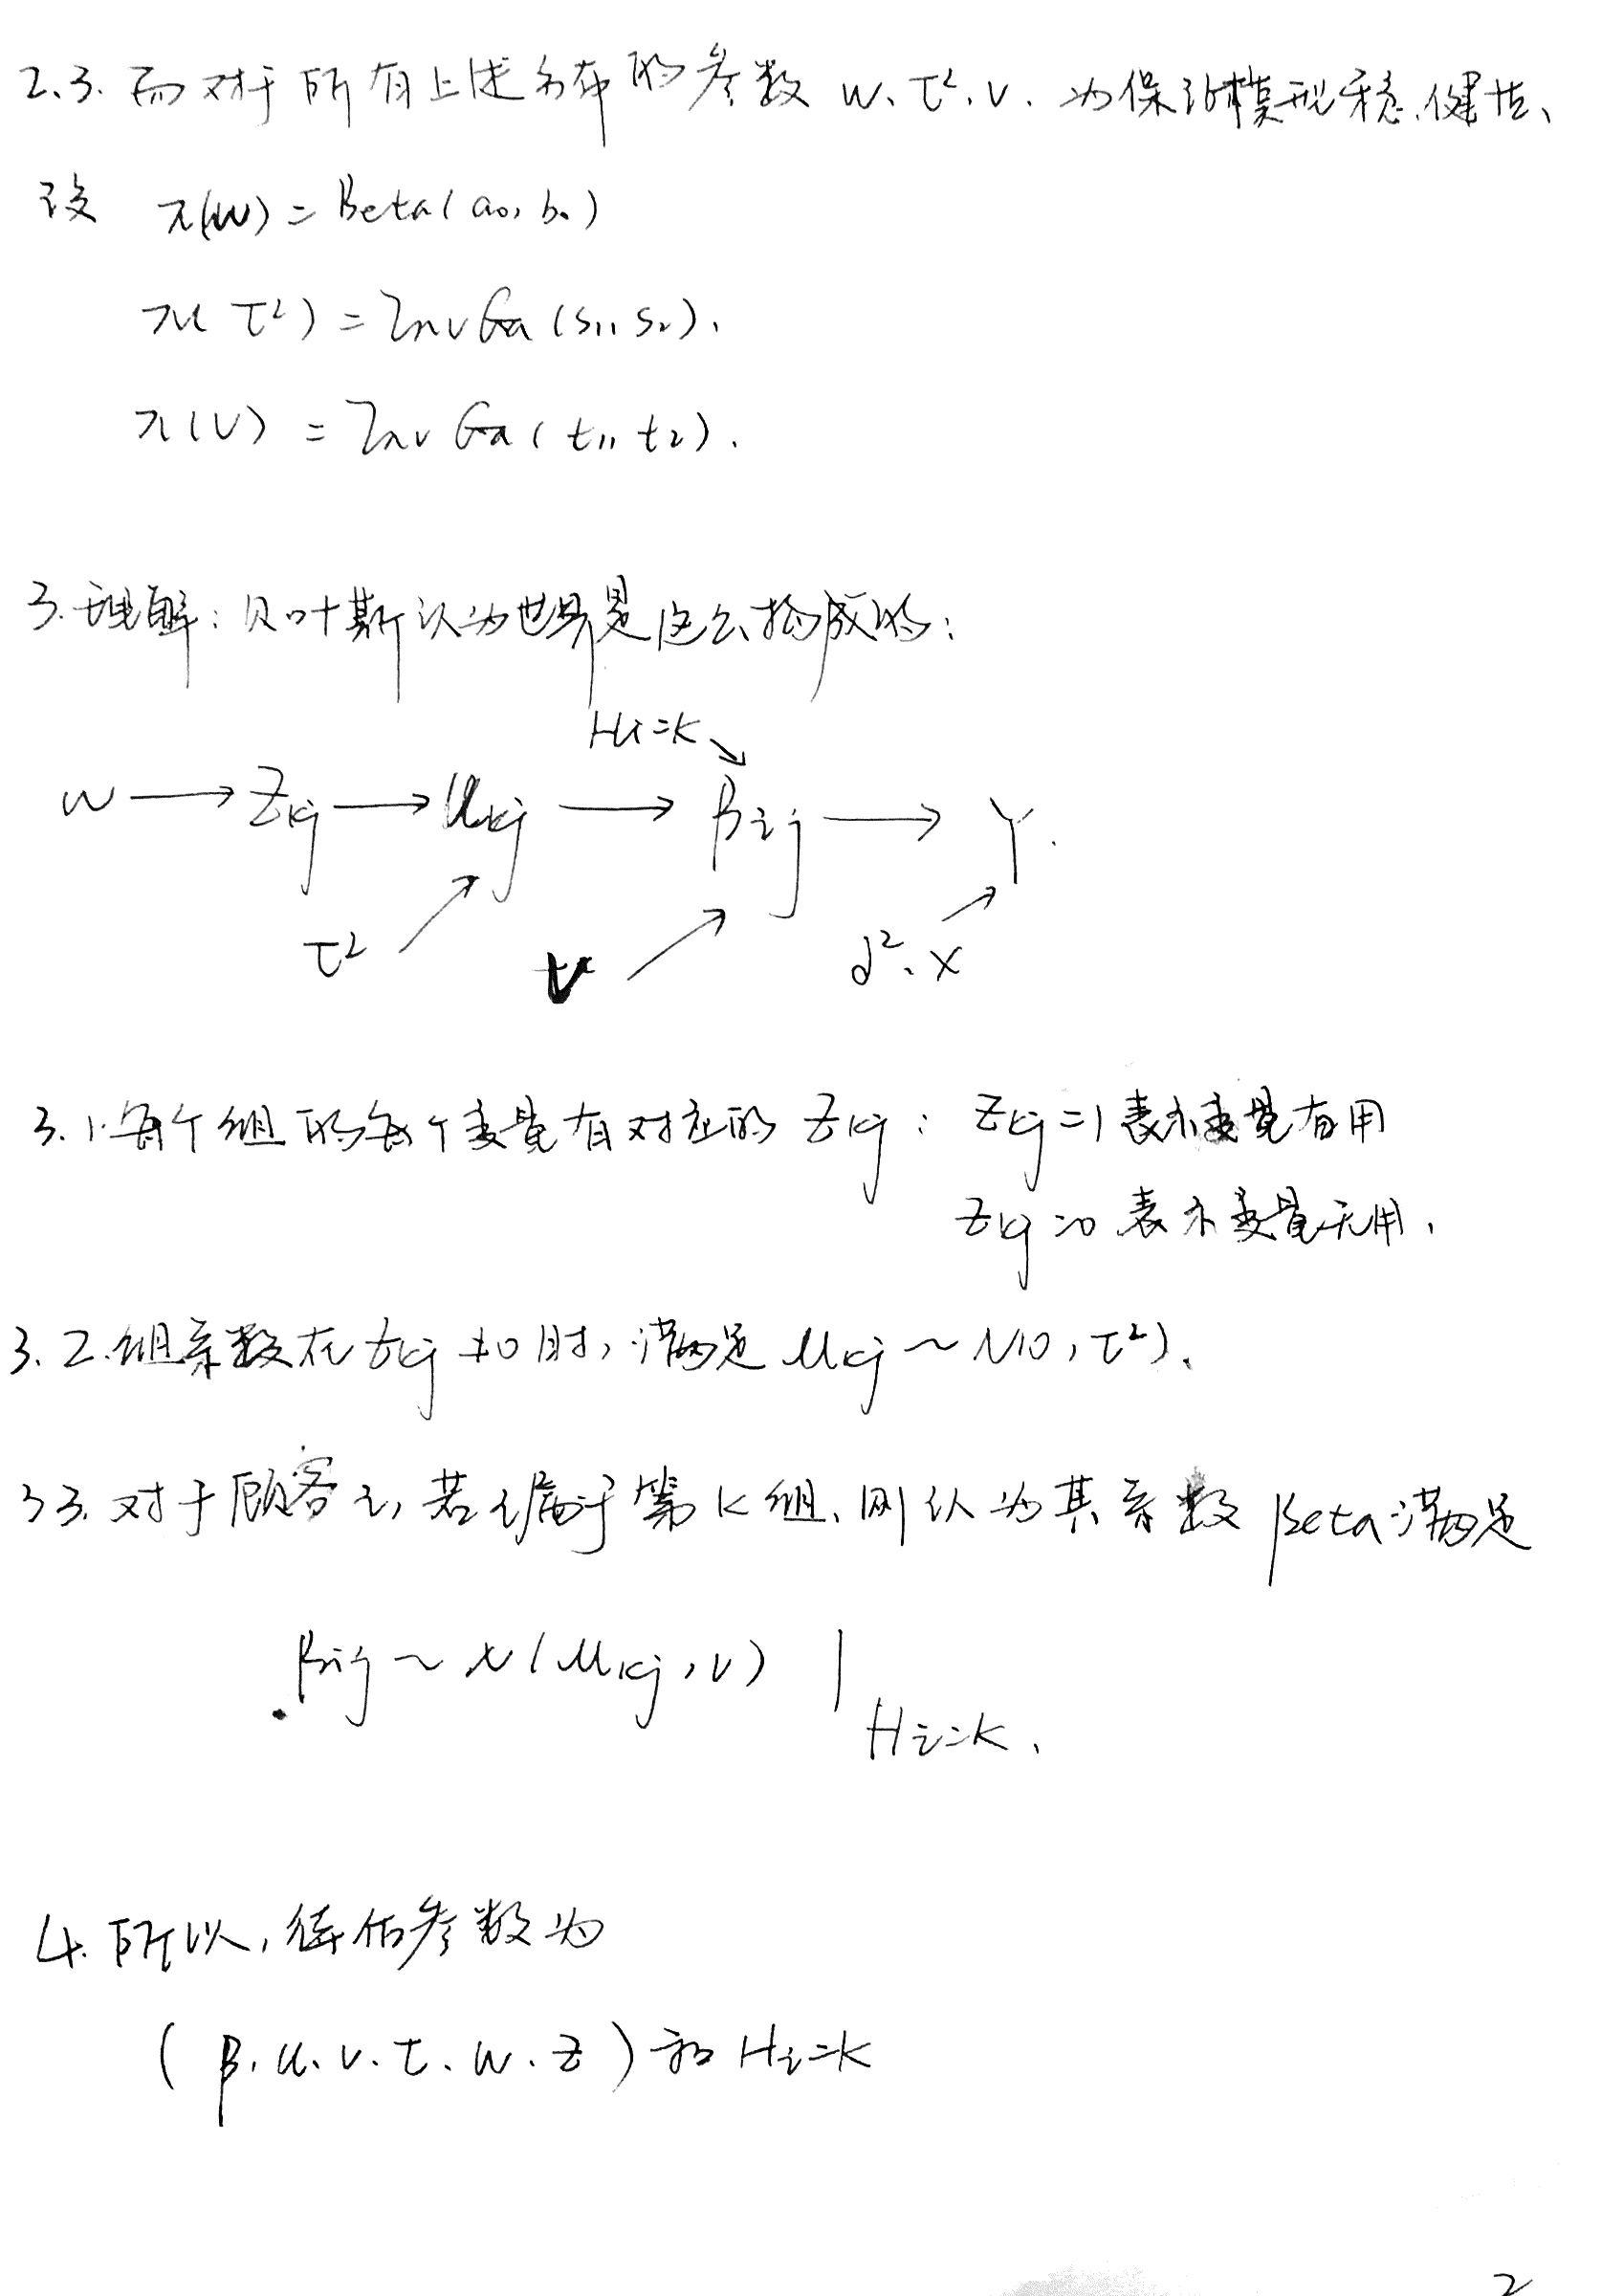 2.3. 而对于所有上述分布的参数 w、τ²、v. 为保证模型稳健性、
设 π(w) = Beta(a₀, b₀)
π(τ²) = InvGa(s₁, s₂).
π(v) = InvGa(t₁, t₂).
3. 理解: 贝叶斯认为世界是这么构成的:
Hi=k ↘
w → Zkj → μkj → βij → Y.
τ² ↗ v ↗ σ²、x ↗
3.1. 每个组的每个变量有对应的 Zkj : Zkj=1 表示变量有用
Zkj=0 表示变量无用.
3.2. 组系数在 Zkj ≠0 时, 满足 μkj ~ N(0, τ²).
3.3. 对于顾客 i, 若 i 属于第 k 组、则认为其系数 Beta 满足
βij ~ N(μkj, v) | Hi=k.
4. 所以, 待估参数为
(β. μ. v. τ. w. z) 和 Hi=k
2